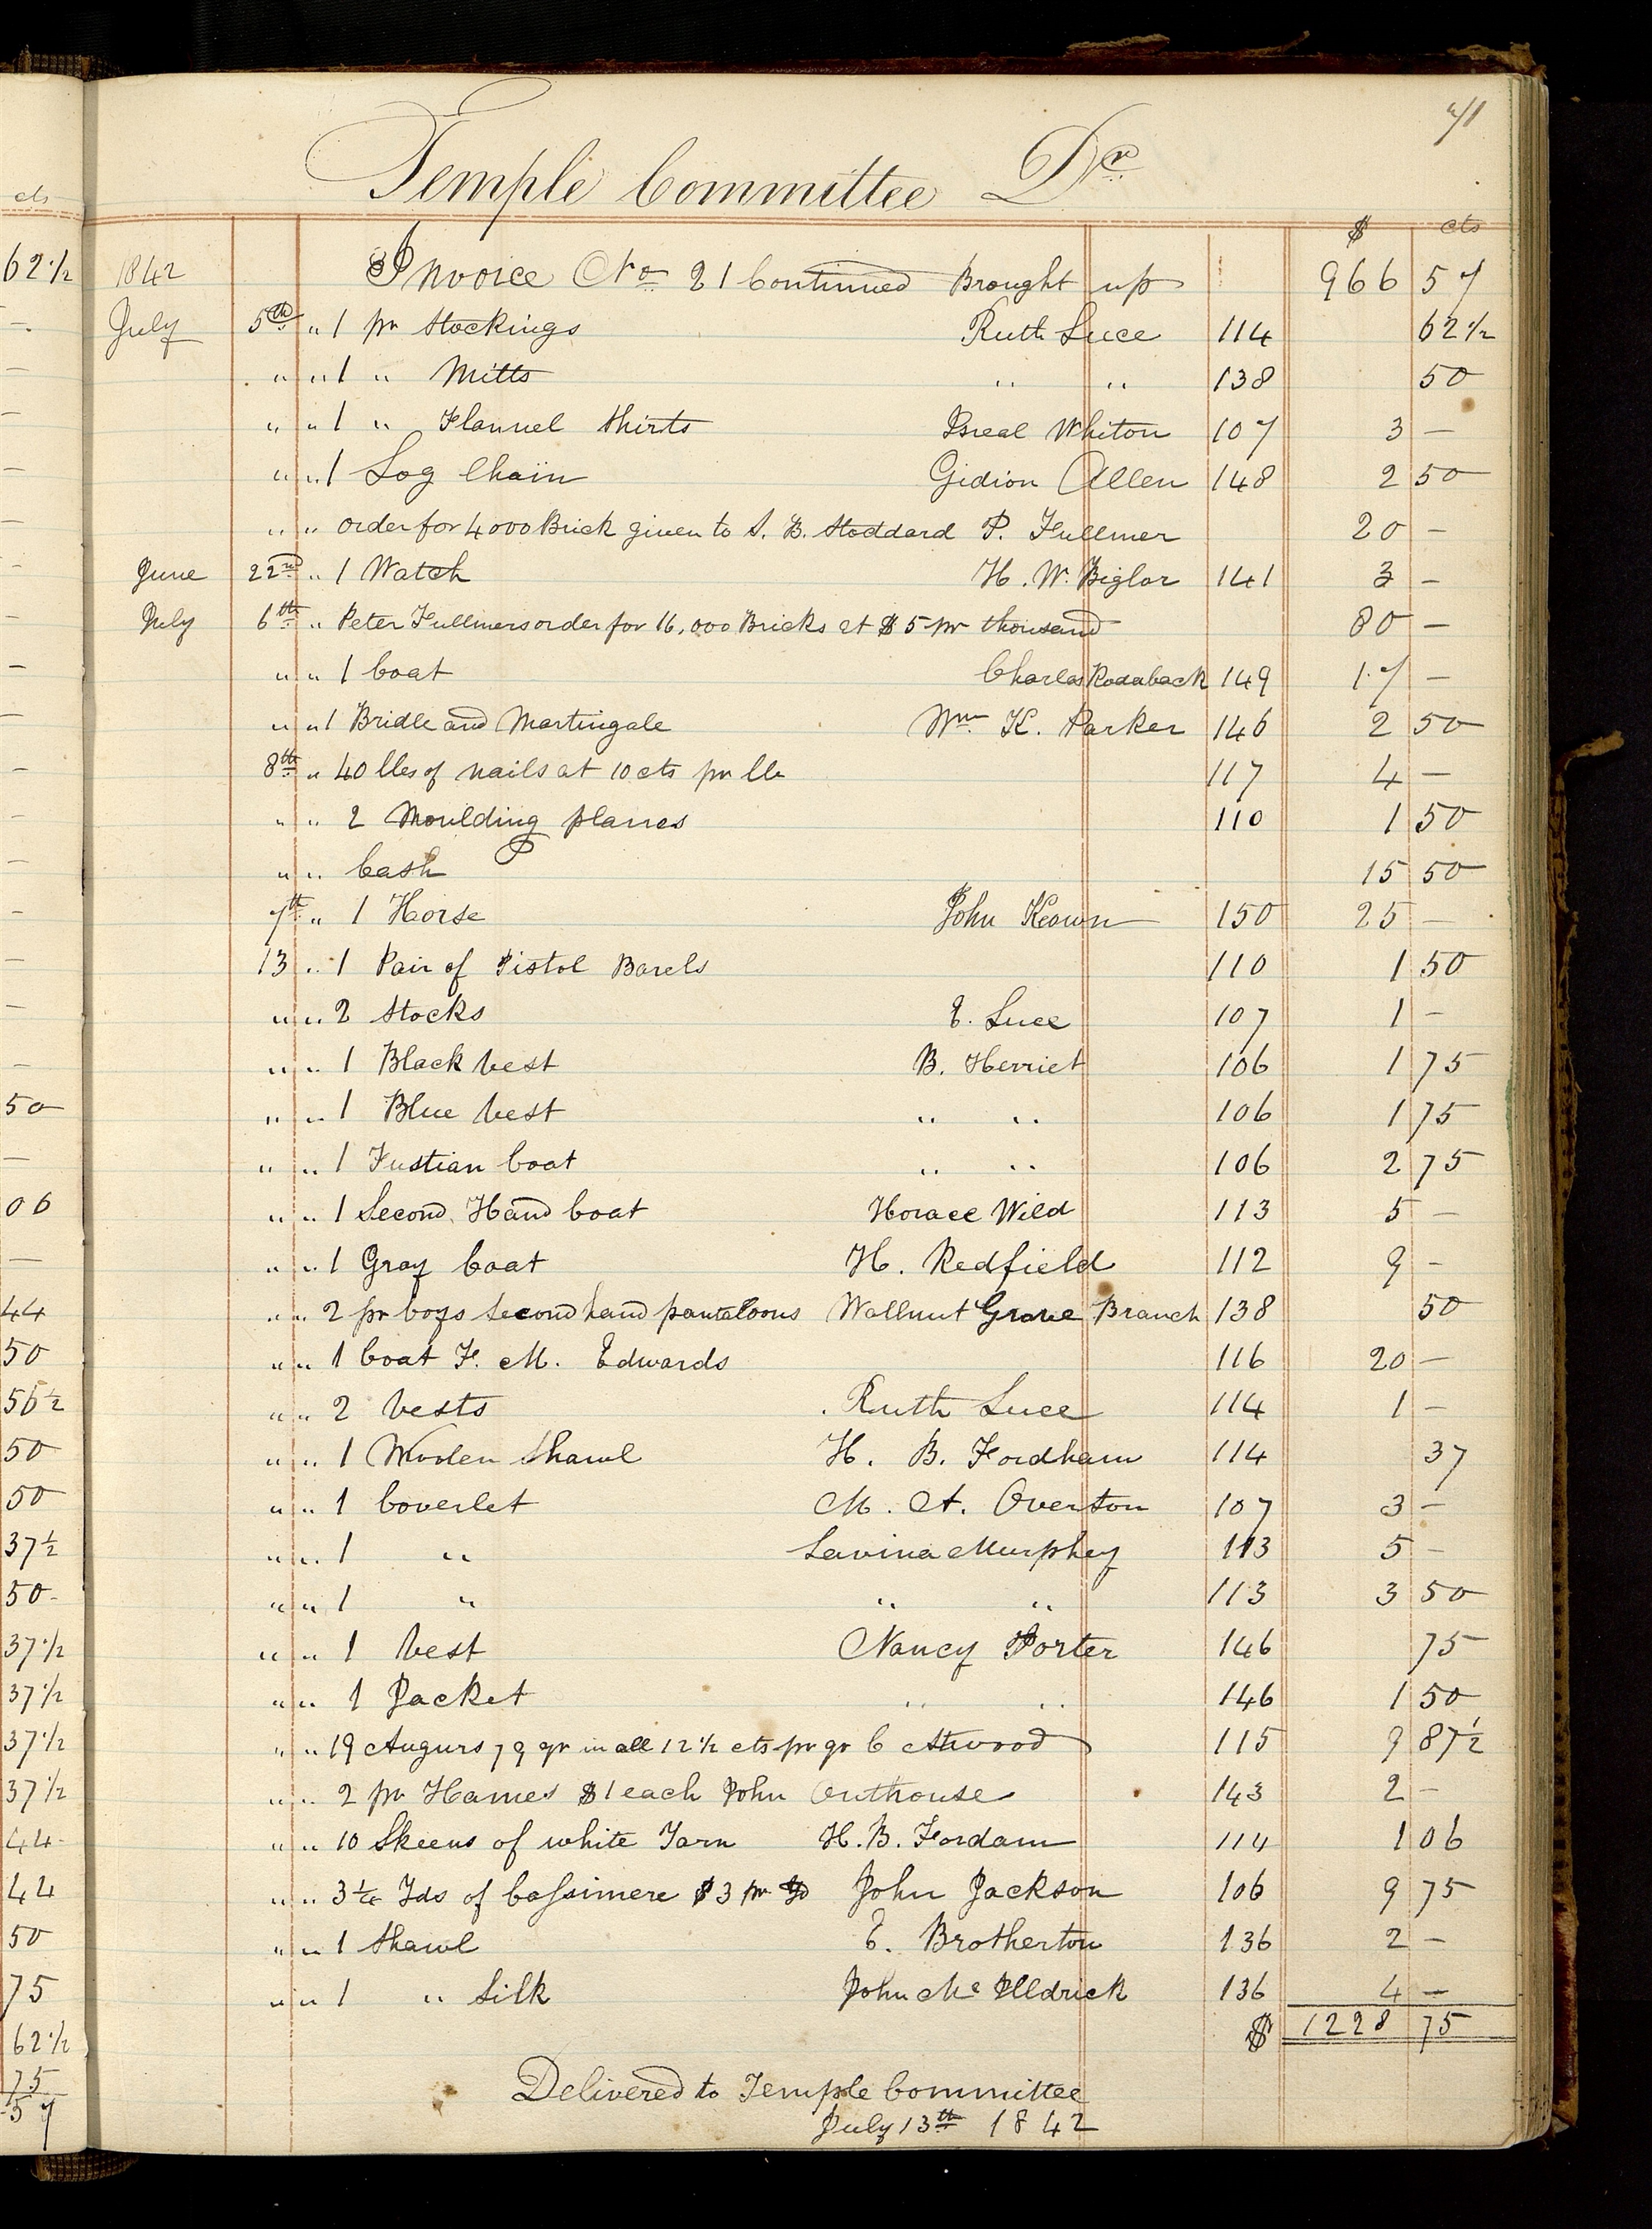 71
Temple Committee Dr
$ cts
1842 Invoice No 21 Continued Brought up 966 57
July 5th " 1 pr Stockings Ruth Luce 114 62 1/2
" " 1 " Mitts " " 138 50
" " 1 " Flannel Shirts Bseal Whiton 107 3 —
" " 1 Log Chain Gidion Allen 148 2 50
" " order for 4000 Brick given to S. B. Stoddard P. Fullmer 20 —
June 22nd " 1 Watch H. W. Biglor 141 3 —
July 6th " Peter Fullmers order for 16,000 Bricks at $5 pr thousand 80 —
" " 1 Coat Charles Rodaback 149 17 —
" " 1 Bridle and Martingale Wm K. Parker 146 2 50
8th " 40 lbs of nails at 10 cts pr lb 117 4 —
" " 2 Moulding planes 110 1 50
" " Cash 15 50
7th " 1 Horse John Keown 150 25 —
13 " 1 Pair of Pistol Barels 110 1 50
" " 2 Stocks E. Luce 107 1 —
" " 1 Black Vest B. Herriet 106 1 75
" " 1 Blue Vest " " 106 1 75
" " 1 Fustian Coat " " 106 2 75
" " 1 Second Hand Coat Horace Wild 113 5 —
" " 1 Gray Coat H. Redfield 112 9 —
" " 2 pr boys Second hand pantaloons Wallnut Grove Branch 138 50
" " 1 Coat F. M. Edwards 116 20 —
" " 2 Vests Ruth Luce 114 1 —
" " 1 Woolen Shawl H. B. Fordham 114 37
" " 1 Coverlet M. A. Overton 107 3 —
" " 1 " Lavina Murphey 113 5 —
" " 1 " " " 113 3 50
" " 1 Vest Nancy Porter 146 75
" " 1 Jacket " " 146 1 50
" " 19 Augurs 79 qr in all 12 1/2 cts pr qr C Atwood 115 9 87 1/2
" " 2 pr Hames $1 each John Outhouse 143 2 —
" " 10 Skeens of white Yarn H. B. Fordam 114 1 06
" " 3 1/4 Yds of Cassimere $3 pr yd John Jackson 106 9 75
" " 1 Shawl E. Brotherton 136 2 —
" " 1 " Silk John Mc Illdrick 136 4 —
$ 1228 75
Delivered to Temple Committee
July 13th 1842
cts
62 1/2
—
50
06
44
50
56 1/2
50
50
37 1/2
50
37 1/2
37 1/2
37 1/2
37 1/2
44
44
50
75
62 1/2
75
57